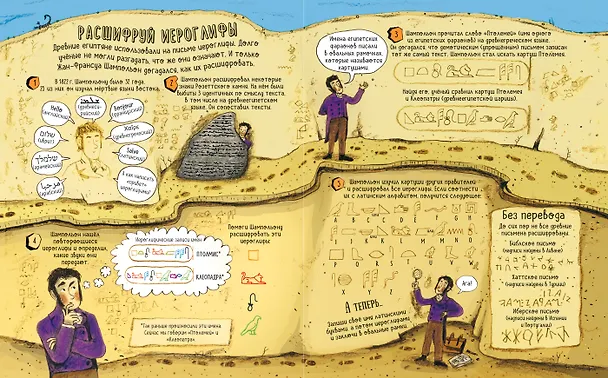 РАСШИФРУЙ ИЕРОГЛИФЫ
Древние египтяне использовали на письме иероглифы. Долго
учёные не могли разгадать, что же они означают. И только
Жан-Франсуа Шампольон догадался, как их расшифровать.
1
В 1822 г. Шампольону было 32 года.
23 из них он изучал мёртвые языки Востока.
Hello
(английский)
Bonjour
(французский)
שלום
(иврит)
Salve
(латинский)
مرحبا
А как написать
«привет»
иероглифами?
2
Шампольон расшифровал некоторые
знаки Розеттского камня. На нём были
выбиты 3 идентичных по смыслу текста,
в том числе на древнеегипетском
языке. Он сопоставил тексты.
Имена египетских
фараонов писали
в овальных рамочках,
которые называются
картушами.
3
Шампольон прочитал слово «Птолемей» (имя одного
из египетских фараонов) на древнегреческом языке.
Он догадался, что демотическим (упрощённым) письмом записан
тот же самый текст. Шампольон стал искать картуш Птолемея.
Найдя его, учёный сравнил картуш Птолемея
и Клеопатры (древнеегипетской царицы).
4
Шампольон нашёл
повторяющиеся
иероглифы и определил,
какие звуки они
передают.
Иероглифические записи имён
ПТОЛМИС*
КЛЕОПАДРА*
*Так раньше произносили эти имена.
Сейчас мы говорим «Птолемей» и
«Клеопатра».
Помоги Шампольону
расшифровать эти
иероглифы:
5
Шампольон изучил картуши других правителей
и расшифровал все иероглифы. Если соотнести
их с латинским алфавитом, получится следующее:
А ТЕПЕРЬ...
Запиши своё имя латинскими
буквами, а потом иероглифами
и заключи в овальные рамки.
Ага!
Без перевода
До сих пор не все древние
письмена расшифрованы.
Библское письмо
(надписи найдены в Ливане)
Хаттское письмо
(надписи найдены в Турции)
Иберское письмо
(надписи найдены в Испании
и Португалии)